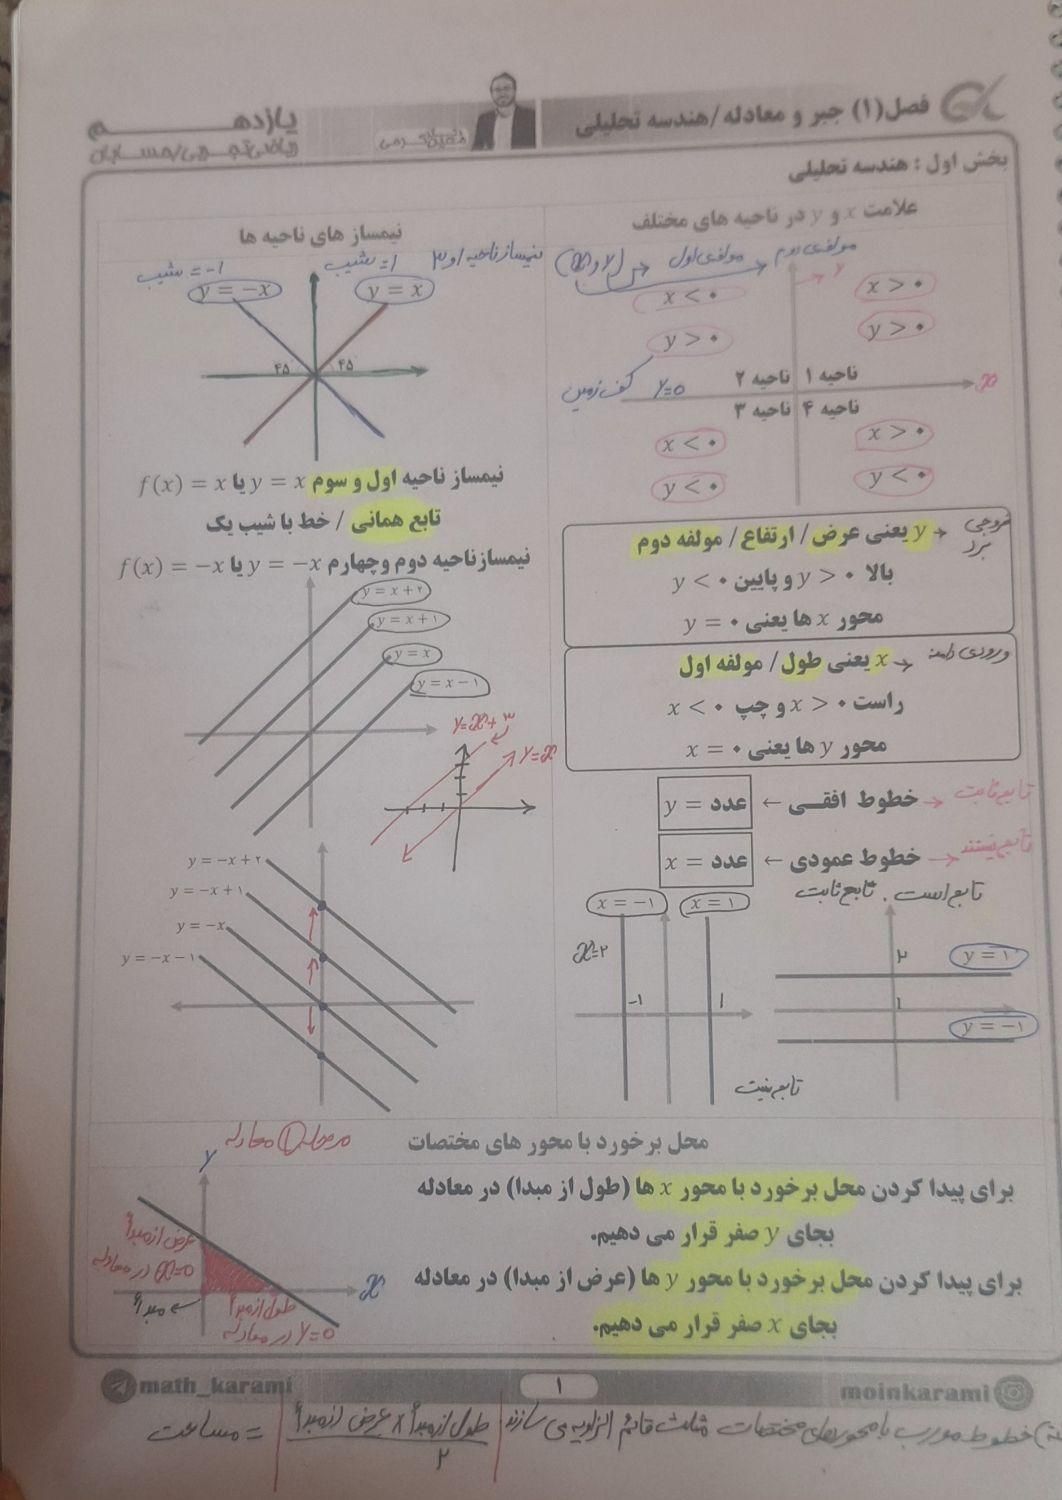 فصل(۱) جبر و معادله /هندسه تحلیلی
یازدهم
بخش اول : هندسه تحلیلی
علامت x و y در ناحیه های مختلف
مولفه‌ی اول
مولفه‌ی دوم
y
x < ۰
x > ۰
y > ۰
y > ۰
ناحیه ۲
ناحیه ۱
کف زمین
y=0
x
ناحیه ۳
ناحیه ۴
x < ۰
x > ۰
y < ۰
y < ۰
خروجی
برد
y یعنی عرض / ارتفاع / مولفه دوم
بالا y > ۰ و پایین y < ۰
محور x ها یعنی y = ۰
ورودی دامنه
x یعنی طول / مولفه اول
راست x > ۰ و چپ x < ۰
محور y ها یعنی x = ۰
خطوط افقی ← عدد = y
تابع ثابت
خطوط عمودی ← عدد = x
تابع نیستند
تابع است . تابع ثابت
x = −۱
x = ۱
x=۲
-1
1
y = ۱
۲
1
y = −۱
تابع نیست
نیمساز های ناحیه ها
نیمساز ناحیه ۱ و ۳
شیب = 1
شیب = -1
y = −x
y = x
۴۵°
۴۵°
نیمساز ناحیه اول و سوم y = x یا f(x) = x
تابع همانی / خط با شیب یک
نیمساز ناحیه دوم وچهارم y = −x یا f(x) = −x
y = x + ۲
y = x + ۱
y = x
y = x − ۱
y=x+۳
y=x
y = −x + ۲
y = −x + ۱
y = −x
y = −x − ۱
محل برخورد با محور های مختصات
معادله
برای پیدا کردن محل برخورد با محور x ها (طول از مبدا) در معادله
بجای y صفر قرار می دهیم.
برای پیدا کردن محل برخورد با محور y ها (عرض از مبدا) در معادله
بجای x صفر قرار می دهیم.
y
عرض از مبدأ
x=0 در معادله
مبدأ
طول از مبدأ
y=0 در معادله
x
math_karami
۱
moinkarami
خطوط مورب با محورهای مختصات مثلث قائم الزاویه می سازند
طول از مبدأ × عرض از مبدأ
۲
= مساحت